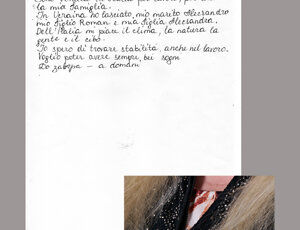 la mia famiglia.
In Ucraina ho lasciato, mio marito Alessandro
mio figlio Roman e mia figlia Alessandra.
Dell'Italia mi piace il clima, la natura la
gente e il cibo.
Io spero di trovare stabilità, anche nel lavoro.
Voglio poter avere sempre, bei sogni
Do zavtra — a domani